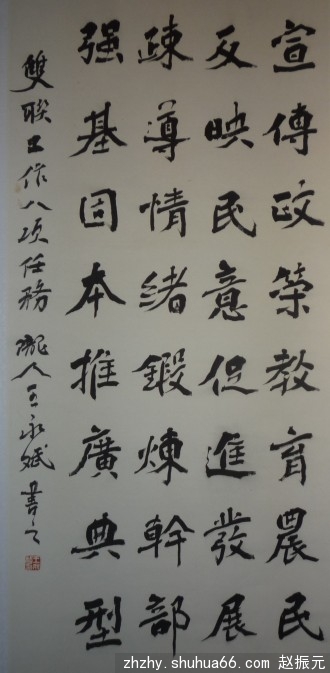 宣傳政策教育農民
反映民意促進發展
疎導情緒鍛煉幹部
强基固本推廣典型
雙聯工作八項任務 隴人王永斌書之
zhzhy.shuhua66.com 赵振元